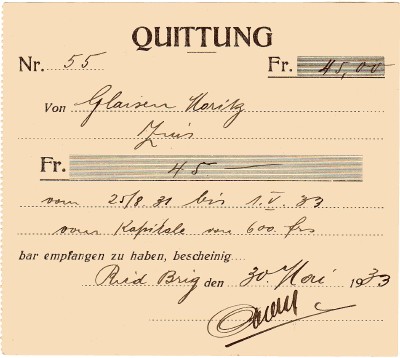 QUITTUNG
Nr. 55 Fr. 45,00
Von Glaisen Moritz
Zins
Fr. 45 —
vom 25/8. 31 bis 1. V. 33
vom Kapitale von 600 frs
bar empfangen zu haben, bescheinig
Ried Brig den 30 Mai 1933